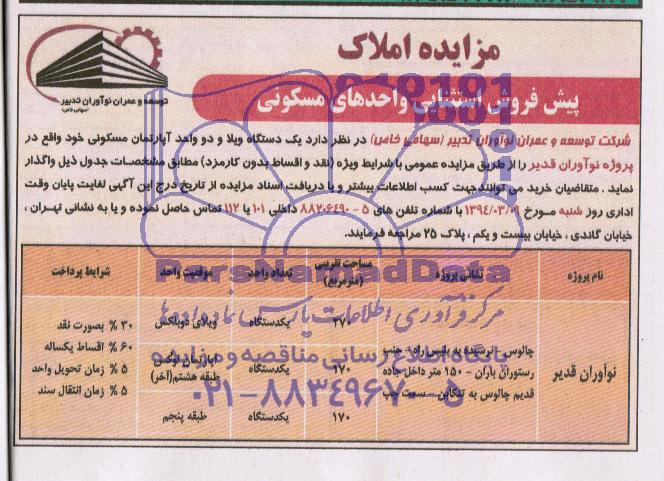 مزایده املاک
پیش فروش استثنایی واحدهای مسکونی
توسعه و عمران نوآوران تدبیر
(سهامی خاص)
شرکت توسعه و عمران نوآوران تدبیر (سهامی خاص) در نظر دارد یک دستگاه ویلا و دو واحد آپارتمان مسکونی خود واقع در
پروژه نوآوران قدیر را از طریق مزایده عمومی با شرایط ویژه (نقد و اقساط بدون کارمزد) مطابق مشخصات جدول ذیل واگذار
نماید . متقاضیان خرید می توانند جهت کسب اطلاعات بیشتر و یا دریافت اسناد مزایده از تاریخ درج این آگهی لغایت پایان وقت
اداری روز شنبه مورخ ۱۳۹۴/۰۳/۰۹ با شماره تلفن های ۵ - ۸۸۲۰۶۴۹۰ داخلی ۱۰۱ یا ۱۱۲ تماس حاصل نموده و یا به نشانی تهران ،
خیابان گاندی ، خیابان بیست و یکم ، پلاک ۲۵ مراجعه فرمایند.
نام پروژه نشانی پروژه مساحت تقریبی (مترمربع) تعداد واحد موقعیت واحد شرایط پرداخت
نوآوران قدیر
چالوس - نرسیده به پلیس راه - جنب
رستوران باران - ۱۵۰ متر داخل جاده
قدیم چالوس به تنکابن - سمت چپ
۲۷۰ یکدستگاه ویلای دوبلکس
۲۷۰ یکدستگاه آپارتمان لوکس
طبقه هشتم(آخر)
۱۷۰ یکدستگاه طبقه پنجم
۳۰ % بصورت نقد
۶۰ % اقساط یکساله
۵ % زمان تحویل واحد
۵ % زمان انتقال سند
ParsNamadData
مرکز فرآوری اطلاعات پارس نماد داده ها
پایگاه اطلاع رسانی مناقصه و مزایده
۰۲۱-۸۸۳۴۹۶۷۰-۵